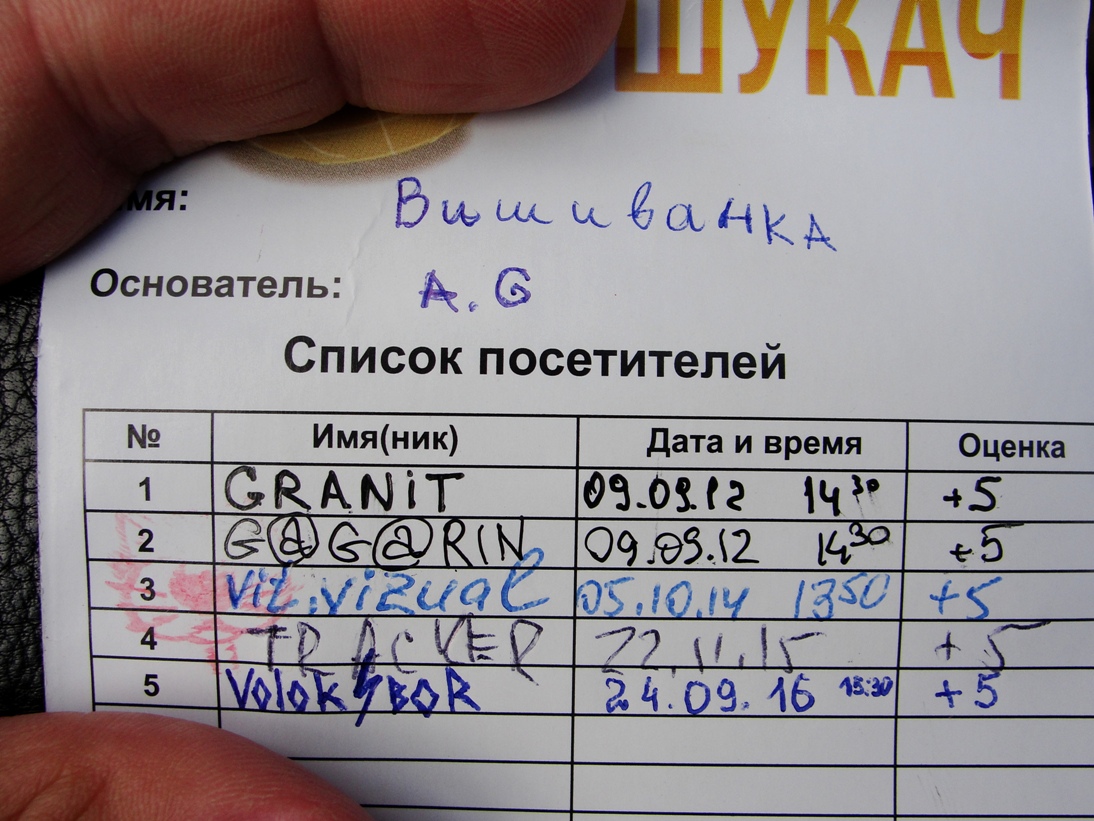 ШУКАЧ
мя: Вишиванка
Основатель: A.G
Список посетителей
№ Имя(ник) Дата и время Оценка
1 GRANiT 09.09.12 14 30 +5
2 G@G@RIN 09.09.12 14 30 +5
3 vit.vizual 05.10.14 13 50 +5
4 TRACKER 22.11.15 +5
5 VolokSBOR 24.09.16 15:30 +5